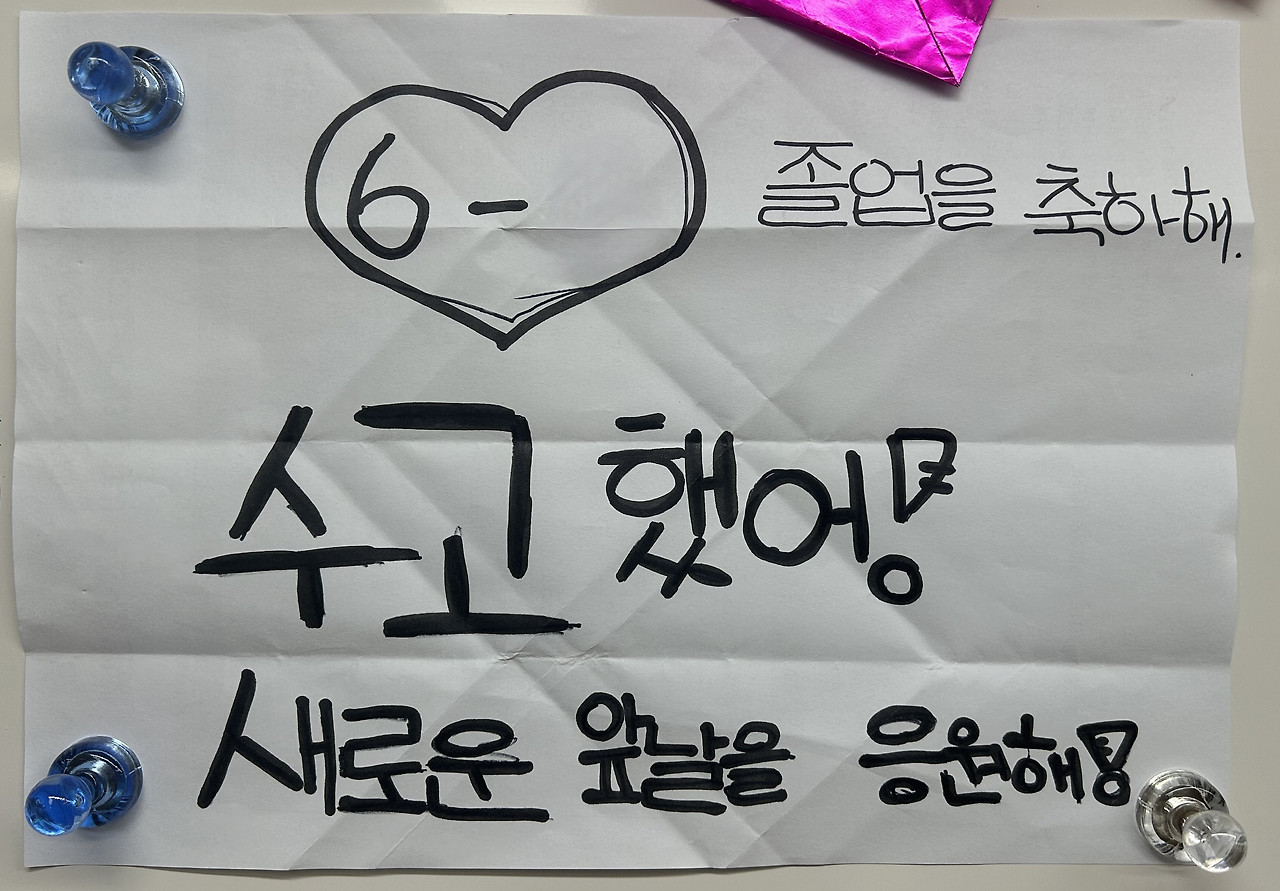 6 - 졸업을 축하해.
수고했어!
새로운 앞날을 응원해!